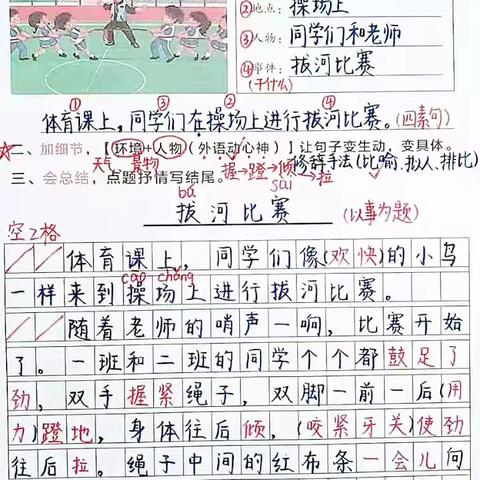 ②地点：操场上
③人物：同学们和老师
④事件：拔河比赛
(干什么)
① ③ ② ④
体育课上，同学们在操场上进行拔河比赛。(四素句)
二、加细节，【环境+人物（外语动心神）】让句子变生动，变具体。
天气 景物 修辞手法(比喻、拟人、排比)
握→蹬→倾→拉
三、会总结，点题抒情写结尾。
bá sài
拔河比赛 (以事为题)
空2格
体育课上，同学们像(欢快)的小鸟
cāo chǎng
一样来到操场上进行拔河比赛。
随着老师的哨声一响，比赛开始
了。一班和二班的同学个个都鼓足了
劲，双手握紧绳子，双脚一前一后(用
力)蹬地，身体往后倾，(咬紧牙关)使劲
往后拉。绳子中间的红布条一会儿向